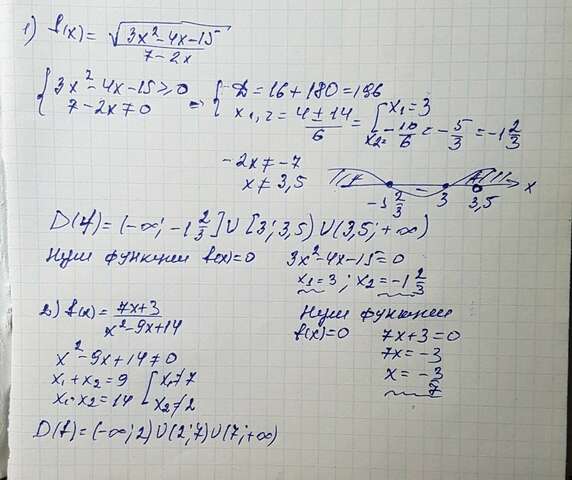 1) f(x) = √(3x²-4x-15) / 7-2x
{ 3x²-4x-15 ≥ 0
7-2x ≠ 0 ⇒ { D = 16 + 180 = 196
x1,2 = 4 ± 14 / 6 = [ x1 = 3
x2 = -10/6 = -5/3 = -1 2/3
-2x ≠ -7
x ≠ 3,5
-1 2/3 3 3,5 x
D(f) = (-∞; -1 2/3] ∪ [3; 3,5) ∪ (3,5; +∞)
Нули функции f(x)=0 3x²-4x-15=0
x1=3; x2=-1 2/3
2) f(x) = 7x+3 / x²-9x+14
x²-9x+14 ≠ 0
x1 + x2 = 9 [ x1 ≠ 7
x1 · x2 = 14 x2 ≠ 2
D(f) = (-∞; 2) ∪ (2; 7) ∪ (7; +∞)
Нули функции
f(x)=0 7x+3=0
7x = -3
x = -3/7